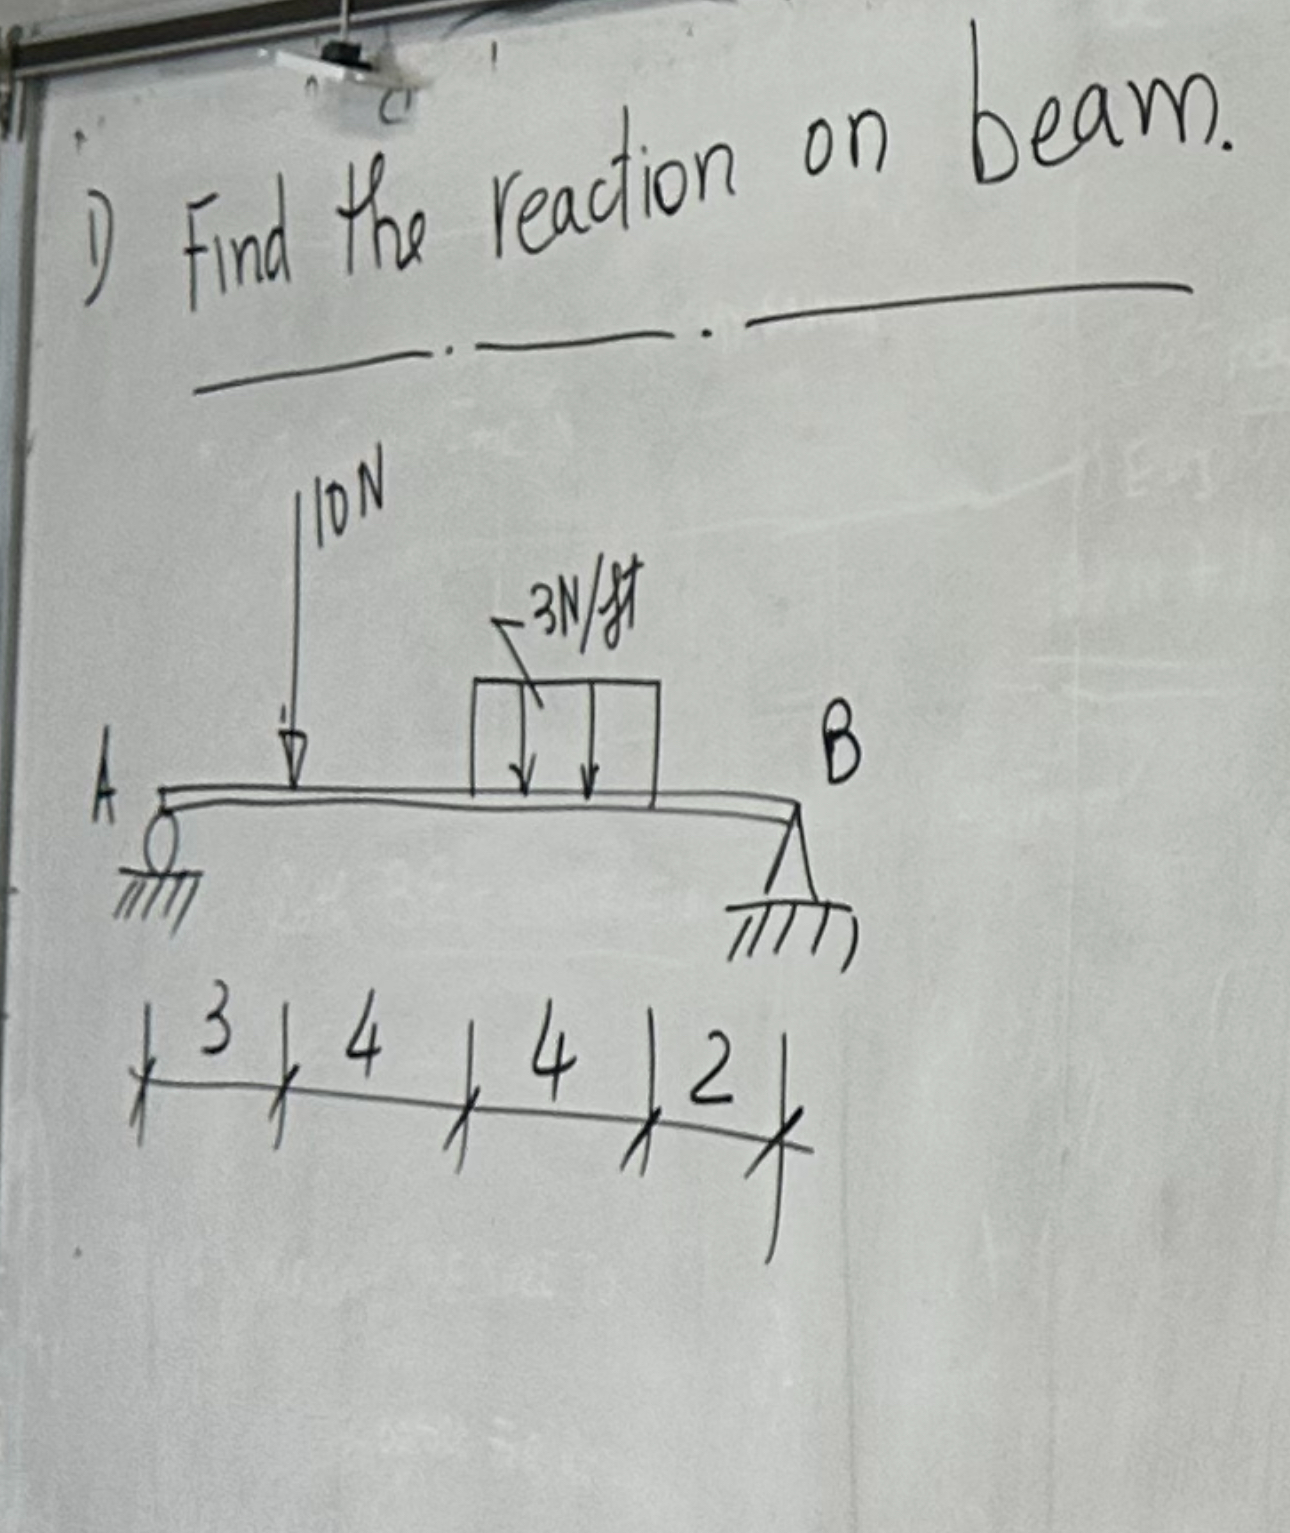 1) Find the reaction on beam.
10N
3N/ft
A
B
3 4 4 2